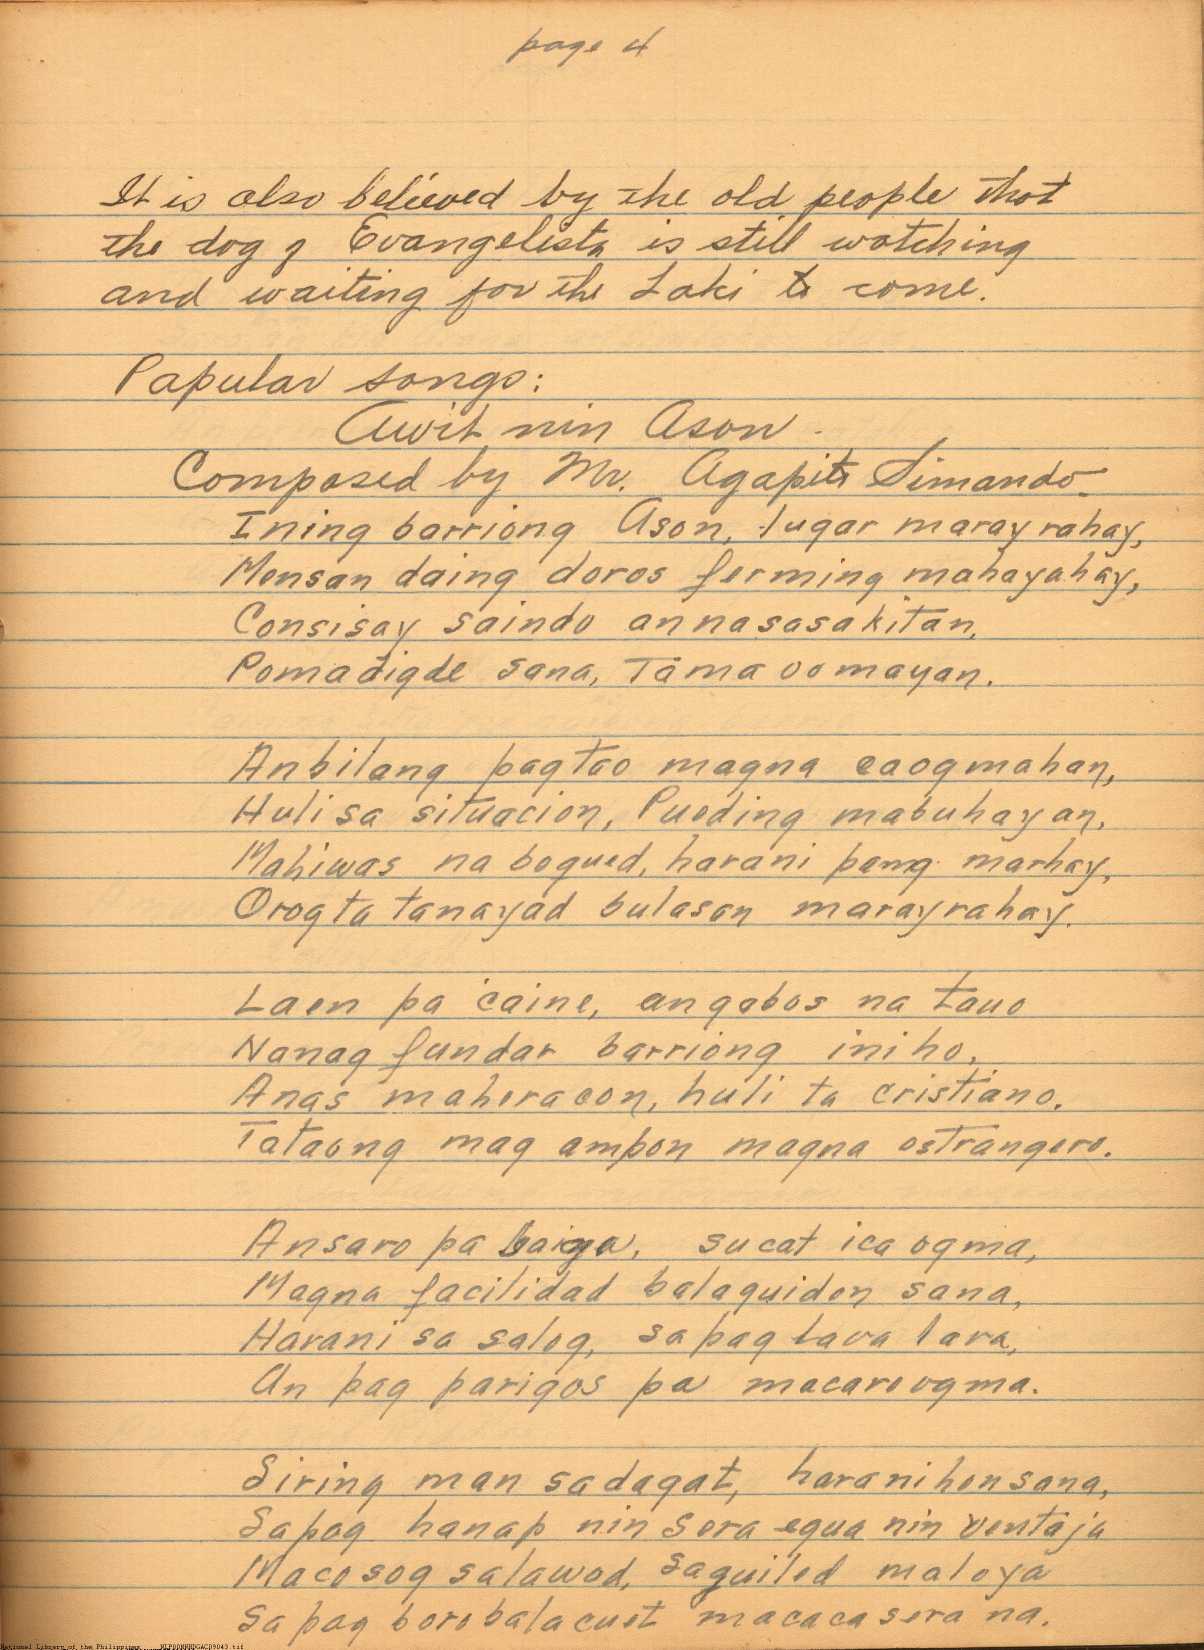 page 4
It is also believed by the old people that
the dog of Evangelista is still watching
and waiting for the Laki to come.
Papular songs:
Awit nin Ason.
Composed by Mr. Agapito Simando.
Ining barriong Ason, lugar marayrahay,
Mensan daing doros ferming mahayahay,
Consisay saindo an nasasakitan,
Pomadigde sana, Tama oomayan.
An bilang pagtao magna caogmahan,
Huli sa situacion, Pueding mabuhayan,
Mahiwas na bogued, harani pang marhay,
Orog ta tanayad bulasan marayrahay.
Laen pa caine, an gabos na tauo
Nanag fundar barriong iniho,
Anas maheracon, huli ta cristiano.
Tataong mag ampon magna ostrangero.
An saro pa baiya, sucat ica ogma,
Magna facilidad balaguidon sana,
Harani sa salog, sa pag lava lava,
An pag parigos pa macareogma.
Siring man sa dagat, harani hon sana,
Sa pag hanap nin sora egua nin ventaja
Macosog salawod, saguilod maloya
Sa pag boro balacuet macacasera na.
National Library of the Philippines